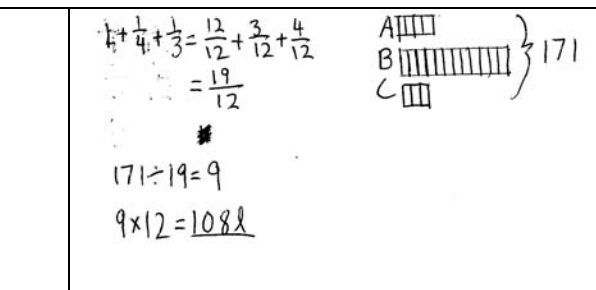 1+1/4+1/3=12/12+3/12+4/12
=19/12
171÷19=9
9×12=108l
A
B
C
171